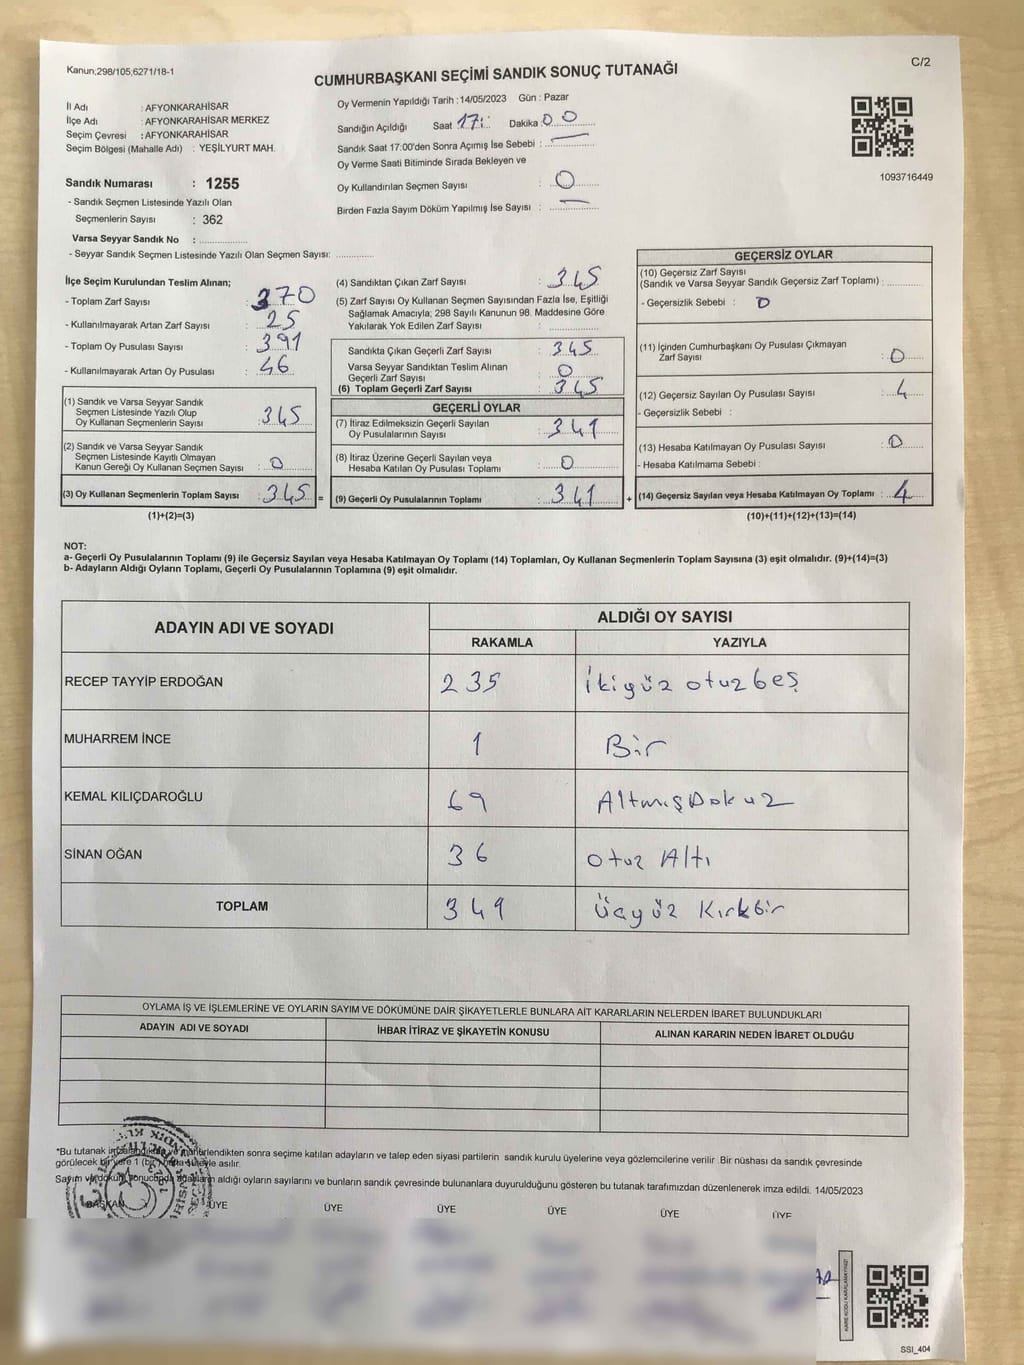 Kanun;298/105;6271/18-1
C/2
CUMHURBAŞKANI SEÇİMİ SANDIK SONUÇ TUTANAĞI
İl Adı : AFYONKARAHİSAR
İlçe Adı : AFYONKARAHİSAR MERKEZ
Seçim Çevresi : AFYONKARAHİSAR
Seçim Bölgesi (Mahalle Adı) : YEŞİLYURT MAH.
Sandık Numarası : 1255
- Sandık Seçmen Listesinde Yazılı Olan
Seçmenlerin Sayısı : 362
Varsa Seyyar Sandık No : ................
- Seyyar Sandık Seçmen Listesinde Yazılı Olan Seçmen Sayısı: ............
Oy Vermenin Yapıldığı Tarih : 14/05/2023 Gün : Pazar
Sandığın Açıldığı Saat 17: Dakika 00
Sandık Saat 17:00'den Sonra Açımış İse Sebebi : —
Oy Verme Saati Bitiminde Sırada Bekleyen ve
Oy Kullandırılan Seçmen Sayısı : 0
Birden Fazla Sayım Döküm Yapılmış İse Sayısı : —
1093716449
İlçe Seçim Kurulundan Teslim Alınan;
- Toplam Zarf Sayısı : 370
- Kullanılmayarak Artan Zarf Sayısı : 25
- Toplam Oy Pusulası Sayısı : 391
- Kullanılmayarak Artan Oy Pusulası : 46
(1) Sandık ve Varsa Seyyar Sandık
Seçmen Listesinde Yazılı Olup
Oy Kullanan Seçmenlerin Sayısı : 345
(2) Sandık ve Varsa Seyyar Sandık
Seçmen Listesinde Kayıtlı Olmayan
Kanun Gereği Oy Kullanan Seçmen Sayısı : 0
(3) Oy Kullanan Seçmenlerin Toplam Sayısı : 345 =
(1)+(2)=(3)
(4) Sandıktan Çıkan Zarf Sayısı : 345
(5) Zarf Sayısı Oy Kullanan Seçmen Sayısından Fazla İse, Eşitliği
Sağlamak Amacıyla; 298 Sayılı Kanunun 98. Maddesine Göre
Yakılarak Yok Edilen Zarf Sayısı : ................
Sandıkta Çıkan Geçerli Zarf Sayısı : 345
Varsa Seyyar Sandıktan Teslim Alınan
Geçerli Zarf Sayısı : 0
(6) Toplam Geçerli Zarf Sayısı : 345
GEÇERLİ OYLAR
(7) İtiraz Edilmeksizin Geçerli Sayılan
Oy Pusulalarının Sayısı : 341
(8) İtiraz Üzerine Geçerli Sayılan veya
Hesaba Katılan Oy Pusulası Toplamı : 0
(9) Geçerli Oy Pusulalarının Toplamı : 341 +
GEÇERSİZ OYLAR
(10) Geçersiz Zarf Sayısı
(Sandık ve Varsa Seyyar Sandık Geçersiz Zarf Toplamı) : ............
- Geçersizlik Sebebi : 0
(11) İçinden Cumhurbaşkanı Oy Pusulası Çıkmayan
Zarf Sayısı : 0
(12) Geçersiz Sayılan Oy Pusulası Sayısı : 4
- Geçersizlik Sebebi :
(13) Hesaba Katılmayan Oy Pusulası Sayısı : 0
- Hesaba Katılmama Sebebi :
(14) Geçersiz Sayılan veya Hesaba Katılmayan Oy Toplamı : 4
(10)+(11)+(12)+(13)=(14)
NOT:
a- Geçerli Oy Pusulalarının Toplamı (9) ile Geçersiz Sayılan veya Hesaba Katılmayan Oy Toplamı (14) Toplamları, Oy Kullanan Seçmenlerin Toplam Sayısına (3) eşit olmalıdır. (9)+(14)=(3)
b- Adayların Aldığı Oyların Toplamı, Geçerli Oy Pusulalarının Toplamına (9) eşit olmalıdır.
ADAYIN ADI VE SOYADI ALDIĞI OY SAYISI
RAKAMLA YAZIYLA
RECEP TAYYİP ERDOĞAN 235 İkiyüz otuzbeş
MUHARREM İNCE 1 Bir
KEMAL KILIÇDAROĞLU 69 AltmışDokuz
SİNAN OĞAN 36 otuz Altı
TOPLAM 349 Üçyüz Kırkbir
OYLAMA İŞ VE İŞLEMLERİNE VE OYLARIN SAYIM VE DÖKÜMÜNE DAİR ŞİKAYETLERLE BUNLARA AİT KARARLARIN NELERDEN İBARET BULUNDUKLARI
ADAYIN ADI VE SOYADI İHBAR İTİRAZ VE ŞİKAYETİN KONUSU ALINAN KARARIN NEDEN İBARET OLDUĞU
*Bu tutanak imzalandıktan ve mühürlendikten sonra seçime katılan adayların ve talep eden siyasi partilerin sandık kurulu üyelerine veya gözlemcilerine verilir. Bir nüshası da sandık çevresinde
görülecek bir yere 1 (bir) hafta süreyle asılır.
Sayım ve döküm sonucunda adayların aldığı oyların sayılarını ve bunların sandık çevresinde bulunanlara duyurulduğunu gösteren bu tutanak tarafımızdan düzenlenerek imza edildi. 14/05/2023
BAŞKAN ÜYE ÜYE ÜYE ÜYE ÜYE ÜYE
SSI_404